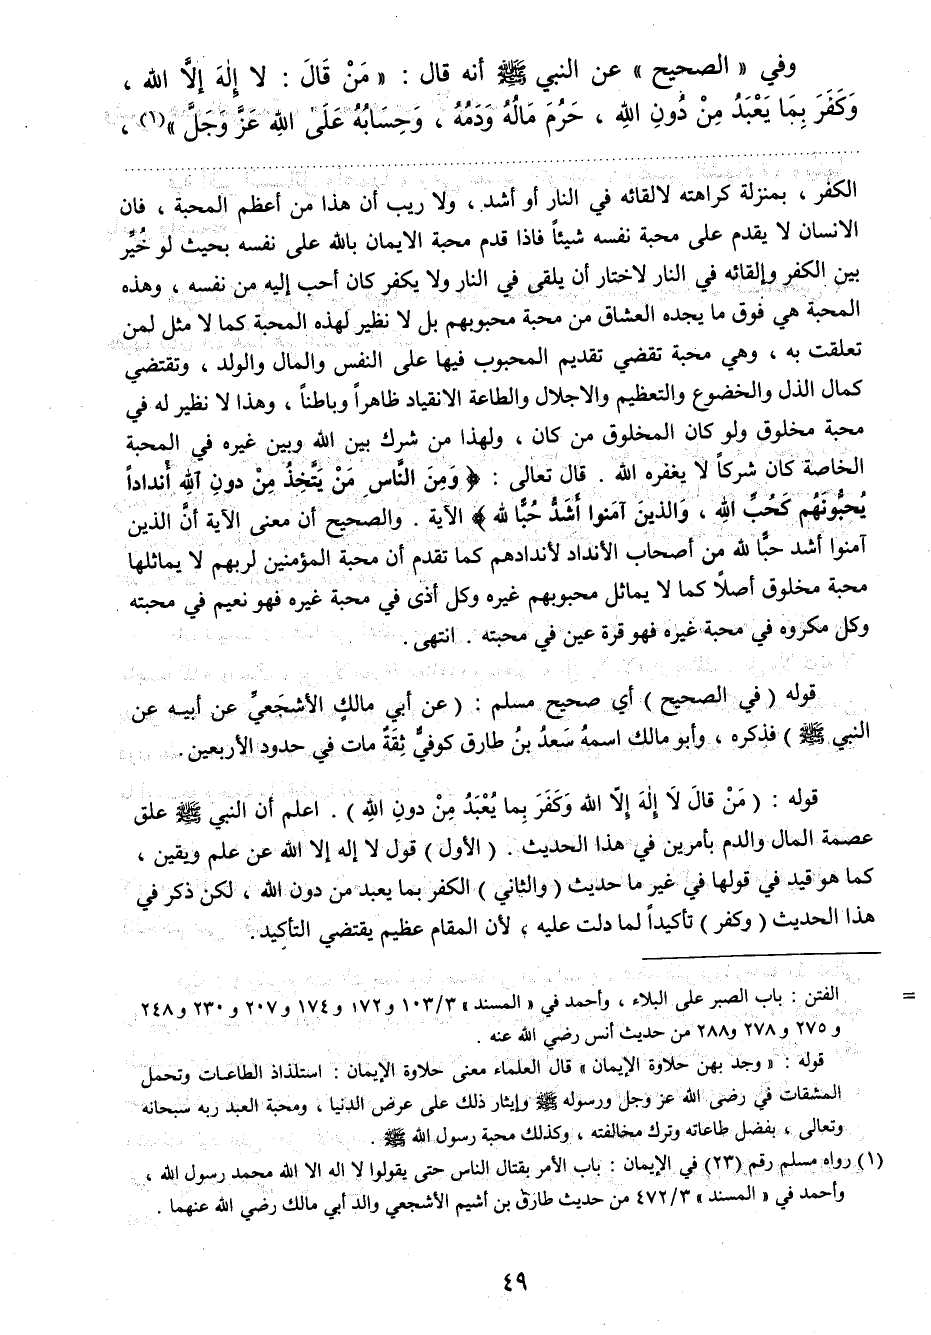 وفي « الصحيح » عن النبي ﷺ أنه قال : « مَنْ قَالَ : لا إِلٰهَ إلَّا الله ،
وَكَفَرَ بِمَا يَعْبَدُ مِنْ دُونِ اللهِ ، حَرُمَ مَالُهُ وَدَمُهُ ، وَحِسَابُهُ عَلَىٰ اللهِ عَزَّ وَجَلَّ »(١) ،
الكفر ، بمنزلة كراهته لالقائه في النار أو أشد ، ولا ريب أن هذا من أعظم المحبة ، فان
الانسان لا يقدم على محبة نفسه شيئاً فاذا قدم محبة الايمان بالله على نفسه بحيث لو خُيِّر
بين الكفر وإلقائه في النار لاختار أن يلقى في النار ولا يكفر كان أحب إليه من نفسه ، وهذه
المحبة هي فوق ما يجده العشاق من محبة محبوبهم بل لا نظير لهذه المحبة كما لا مثل لمن
تعلقت به ، وهي محبة تقضي تقديم المحبوب فيها على النفس والمال والولد ، وتقتضي
كمال الذل والخضوع والتعظيم والاجلال والطاعة الانقياد ظاهراً وباطناً ، وهذا لا نظير له في
محبة مخلوق ولو كان المخلوق من كان ، ولهذا من شرك بين الله وبين غيره في المحبة
الخاصة كان شركاً لا يغفره الله . قال تعالى : ﴿ وَمِنَ النَّاسِ مَنْ يَتَّخِذُ مِنْ دونِ اللهِ أَنداداً
يُحبُّونَهُم كَحُبِّ اللهِ ، وَالذينَ آمَنوا أَشَدُّ حُبًّا لله ﴾ الآية . والصحيح أن معنى الآية أنَّ الذين
آمنوا أشد حبًّا لله من أصحاب الأنداد لأندادهم كما تقدم أن محبة المؤمنين لربهم لا يماثلها
محبة مخلوق أصلًا كما لا يماثل محبوبهم غيره وكل أذى في محبة غيره فهو نعيم في محبته
وكل مكروه في محبة غيره فهو قرة عين في محبته . انتهى .
قوله ( في الصحيح ) أي صحيح مسلم : ( عن أبي مالكٍ الأشجَعيِّ عن أبيه عن
النبي ﷺ ) فذكره ، وأبو مالك اسمهُ سَعدُ بنُ طارق كوفيٌّ ثِقَةٌ مات في حدود الأربعين .
قوله : ( مَنْ قالَ لاَ إِلٰهَ إلّا الله وَكَفَرَ بِما يُعْبَدُ مِنْ دونِ اللهِ ) . اعلم أن النبي ﷺ علق
عصمة المال والدم بأمرين في هذا الحديث . ( الأول ) قول لا إله إلا الله عن علم ويقين ،
كما هو قيد في قولها في غير ما حديث ( والثاني ) الكفر بما يعبد من دون الله ، لكن ذكر في
هذا الحديث ( وكفر ) تأكيداً لما دلت عليه ، لأن المقام عظيم يقتضي التأكيد .
= الفتن : باب الصبر على البلاء ، وأحمد في « المسند » ١٠٣/٣ و ١٧٢ و ١٧٤ و ٢٠٧ و ٢٣٠ و ٢٤٨
و ٢٧٥ و ٢٧٨ و٢٨٨ من حديث أنس رضي الله عنه .
قوله : « وجد بهن حلاوة الإيمان » قال العلماء معنى حلاوة الإيمان : استلذاذ الطاعات وتحمل
المشقات في رضى الله عز وجل ورسوله ﷺ وإيثار ذلك على عرض الدنيا ، ومحبة العبد ربه سبحانه
وتعالى ، بفضل طاعاته وترك مخالفته ، وكذلك محبة رسول الله ﷺ .
(١) رواه مسلم رقم (٢٣) في الإيمان : باب الأمر بقتال الناس حتى يقولوا لا اله الا الله محمد رسول الله ،
وأحمد في « المسند » ٤٧٢/٣ من حديث طارق بن أشيم الأشجعي والد أبي مالك رضي الله عنهما .
٤٩